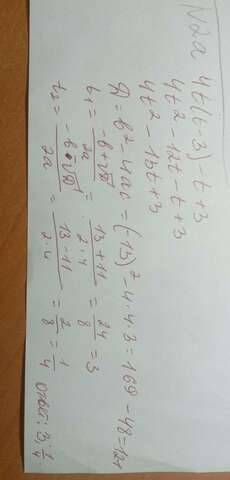 N2a 4t(t-3)-t+3
4t²-12t-t+3
4t²-13t+3
D = b²-4ac = (-13)²-4·4·3 = 169-48=121
t₁ = -b+√D / 2a = 13+11 / 2·4 = 24/8 = 3
t₂ = -b-√D / 2a = 13-11 / 2·4 = 2/8 = 1/4 Ответ: 3; 1/4